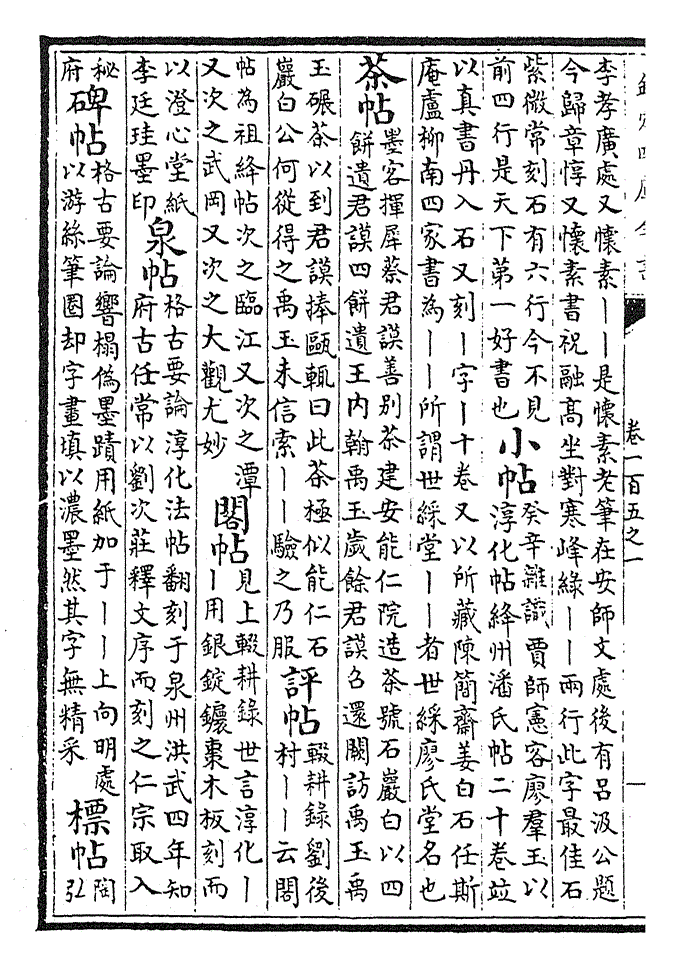 卷一百五之一
李孝廣處又懷素丨丨是懷素老筆在安師文處後有呂汲公題
今歸章惇又懷素書祝融高坐對寒峰綠丨丨兩行此字最佳石
紫微常刻石有六行今不見
前四行是天下第一好書也
小帖
癸辛雜識賈師憲客廖羣玉以
淳化帖絳州潘氏帖二十卷竝
以真書丹入石又刻丨字丨十卷又以所藏陳簡齋姜白石任斯
庵盧柳南四家書為丨丨所謂世綵堂丨丨者世綵廖氏堂名也
茶帖
墨客揮犀蔡君謨善别茶建安能仁院造茶號石巖白以四
餅遺君謨四餅遺王内翰禹玉歲餘君謨召還闕訪禹玉禹
玉碾茶以到君謨捧甌輒曰此茶極似能仁石
巖白公何從得之禹玉未信索丨丨驗之乃服
評帖
輟耕録劉後
村丨丨云閣
帖為祖絳帖次之臨江又次之潭
又次之武岡又次之大觀尤妙
閣帖
見上輟耕録世言淳化丨
丨用銀錠鑲棗木板刻而
以澄心堂紙
李廷珪墨印
泉帖
格古要論淳化法帖翻刻于泉州洪武四年知
府古任常以劉次莊釋文序而刻之仁宗取入
秘
府
碑帖
格古要論響榻偽墨蹟用紙加于丨丨上向明處
以游絲筆圈却字畫填以濃墨然其字無精采
標帖
陶
弘